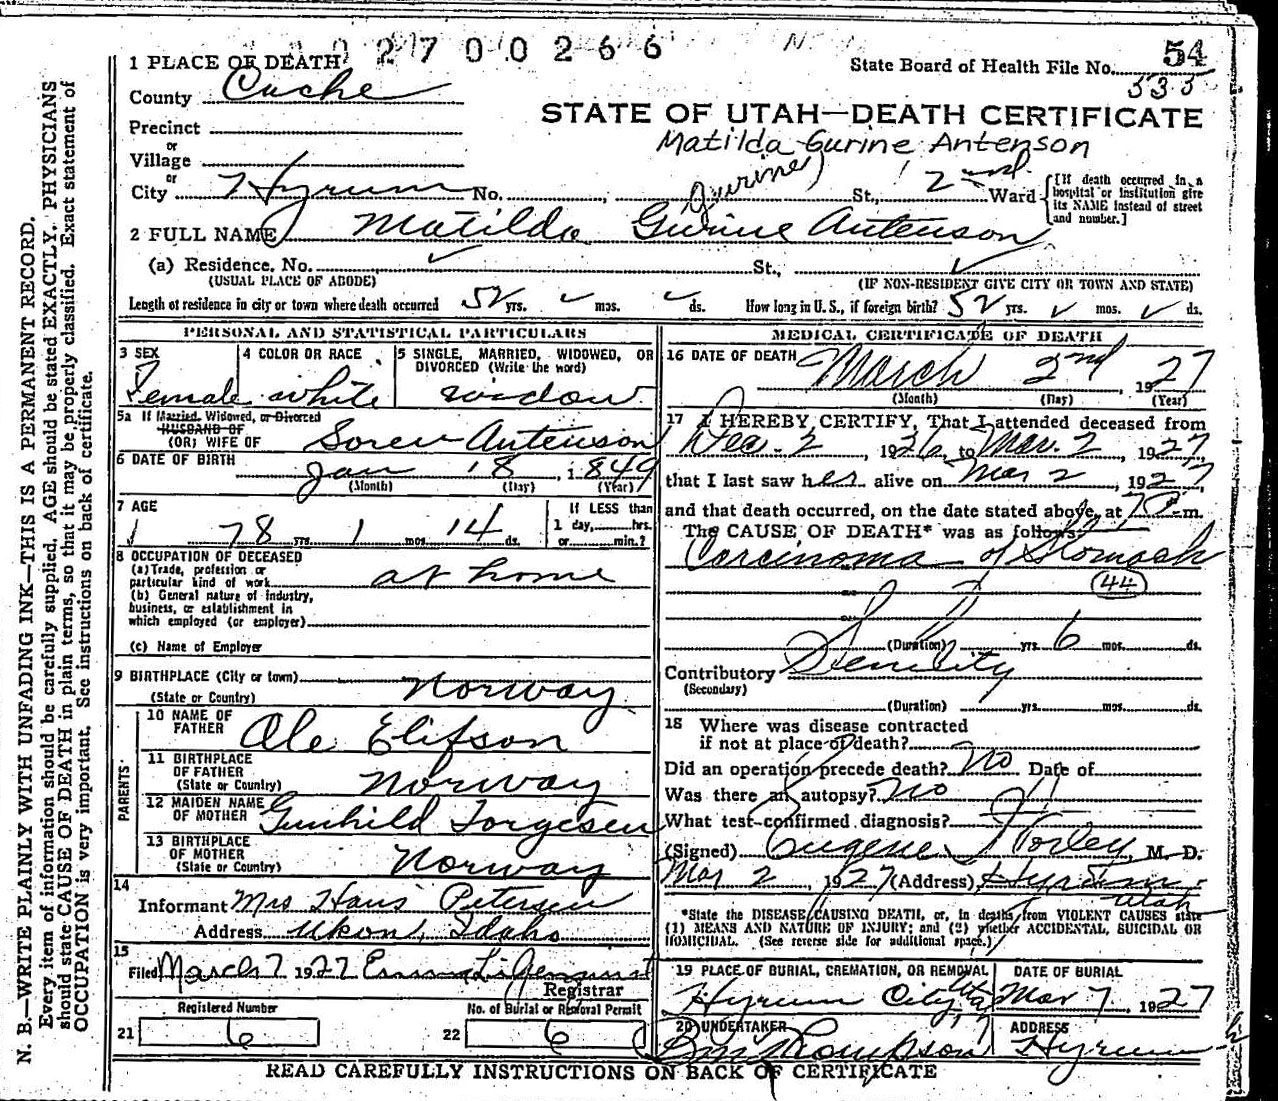 02700266 54
1 PLACE OF DEATH State Board of Health File No. 535
County Cache
STATE OF UTAH—DEATH CERTIFICATE
Precinct
or
Matilda Gurine Antenson
Village
or
City Hyrum No. St., 2nd Ward
[If death occurred in a hospital or institution give its NAME instead of street and number.]
Gurine
2 FULL NAME Matilda Gurine Antenson
(a) Residence, No. St.,
(USUAL PLACE OF ABODE) (IF NON-RESIDENT GIVE CITY OR TOWN AND STATE)
Length of residence in city or town where death occurred 52 yrs. mos. ds. How long in U. S., if foreign birth? 52 yrs. mos. ds.
PERSONAL AND STATISTICAL PARTICULARS
3 SEX Female
4 COLOR OR RACE white
5 SINGLE, MARRIED, WIDOWED, OR DIVORCED (Write the word) widow
5a If Married, Widowed, or Divorced
HUSBAND OF
(OR) WIFE OF Soren Antenson
6 DATE OF BIRTH Jan 18, 1849
(Month) (Day) (Year)
7 AGE 78 yrs. 1 mos. 14 ds.
If LESS than 1 day, hrs. or min.?
8 OCCUPATION OF DECEASED
(a) Trade, profession or particular kind of work at home
(b) General nature of industry, business, or establishment in which employed (or employer)
(c) Name of Employer
9 BIRTHPLACE (City or town)
(State or Country) Norway
PARENTS
10 NAME OF FATHER Ole Elifson
11 BIRTHPLACE OF FATHER (State or Country) Norway
12 MAIDEN NAME OF MOTHER Gunhild Torgesen
13 BIRTHPLACE OF MOTHER (State or Country) Norway
14
Informant Mrs Hans Petersen
Address Ukon, Idaho
15
Filed March 7 1927
Registrar
Registered Number No. of Burial or Removal Permit
21 6 22 6
MEDICAL CERTIFICATE OF DEATH
16 DATE OF DEATH March 2nd, 1927
(Month) (Day) (Year)
17 I HEREBY CERTIFY, That I attended deceased from
Dec. 2, 1926, to Mar. 2, 1927
that I last saw her alive on Mar 2, 1927
and that death occurred, on the date stated above, at 7 P. m.
The CAUSE OF DEATH* was as follows:
Carcinoma of Stomach
44
(Duration) yrs. 6 mos. ds.
Contributory Senility
(Secondary)
(Duration) yrs. mos. ds.
18 Where was disease contracted
if not at place of death?
Did an operation precede death? No Date of
Was there an autopsy? No
What test confirmed diagnosis?
(Signed) Eugene H Worley, M. D.
Mar 2, 1927 (Address) Hyrum,
Utah
*State the DISEASE CAUSING DEATH, or, in deaths from VIOLENT CAUSES state
(1) MEANS AND NATURE OF INJURY; and (2) whether ACCIDENTAL, SUICIDAL OR
HOMICIDAL. (See reverse side for additional space.)
19 PLACE OF BURIAL, CREMATION, OR REMOVAL DATE OF BURIAL
Hyrum City Mar 7, 1927
20 UNDERTAKER ADDRESS
Thompson Hyrum
READ CAREFULLY INSTRUCTIONS ON BACK OF CERTIFICATE
N. B.—WRITE PLAINLY WITH UNFADING INK—THIS IS A PERMANENT RECORD.
Every item of information should be carefully supplied. AGE should be stated EXACTLY. PHYSICIANS
should state CAUSE OF DEATH in plain terms, so that it may be properly classified. Exact statement of
OCCUPATION is very important. See instructions on back of certificate.